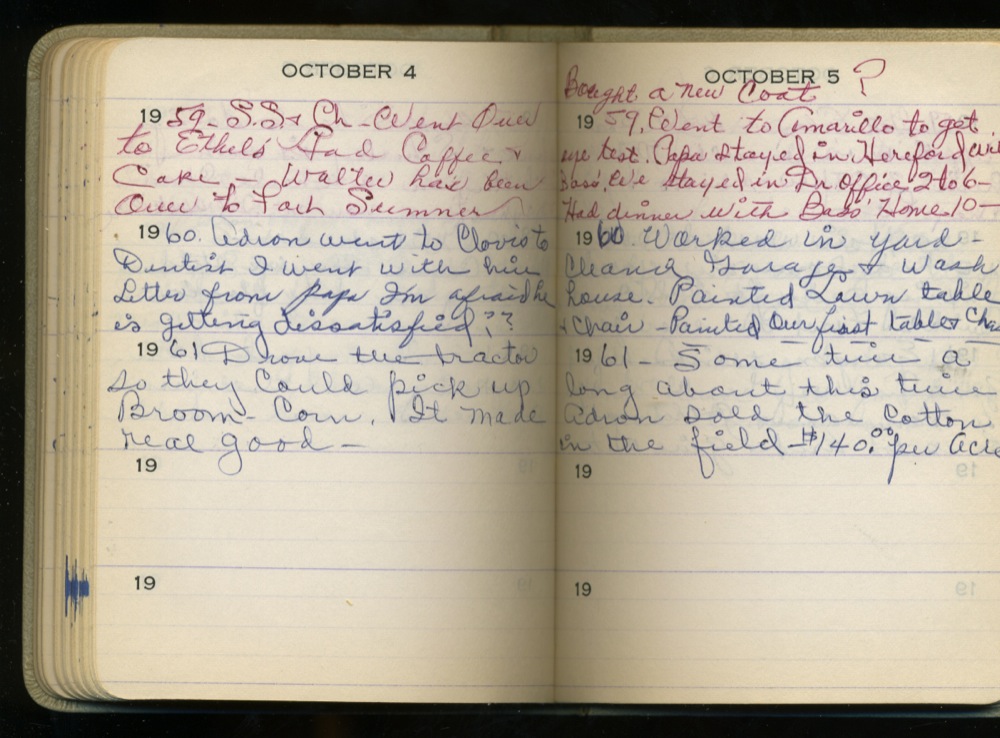 OCTOBER 4
1959- S.S & Ch - Went Over
to Ethels Had Coffee &
Cake - Walter had been
Over to Fort Sumner
1960. Adron went to Clovis to
Dentist I went with him
Letter from papa I'm afraid he
is getting dissatisfied??
1961 Drove the tractor
so they could pick up
Broom-Corn. It made
real good -
19
19
OCTOBER 5
Bought a new Coat ?
1959, Went to Amarillo to get
me test. Papa stayed in Hereford
We stayed in Dr Office 2 to 6-
Had dinner with Bass' Home 10-
1960 Worked in yard-
Cleaned Garage & Wash
house. Painted Lawn table
& Chair - Painted Our first table &
1961- Some time a
long about this time
Adron sold the Cotton
in the field - $140.00 per Acre
19
19